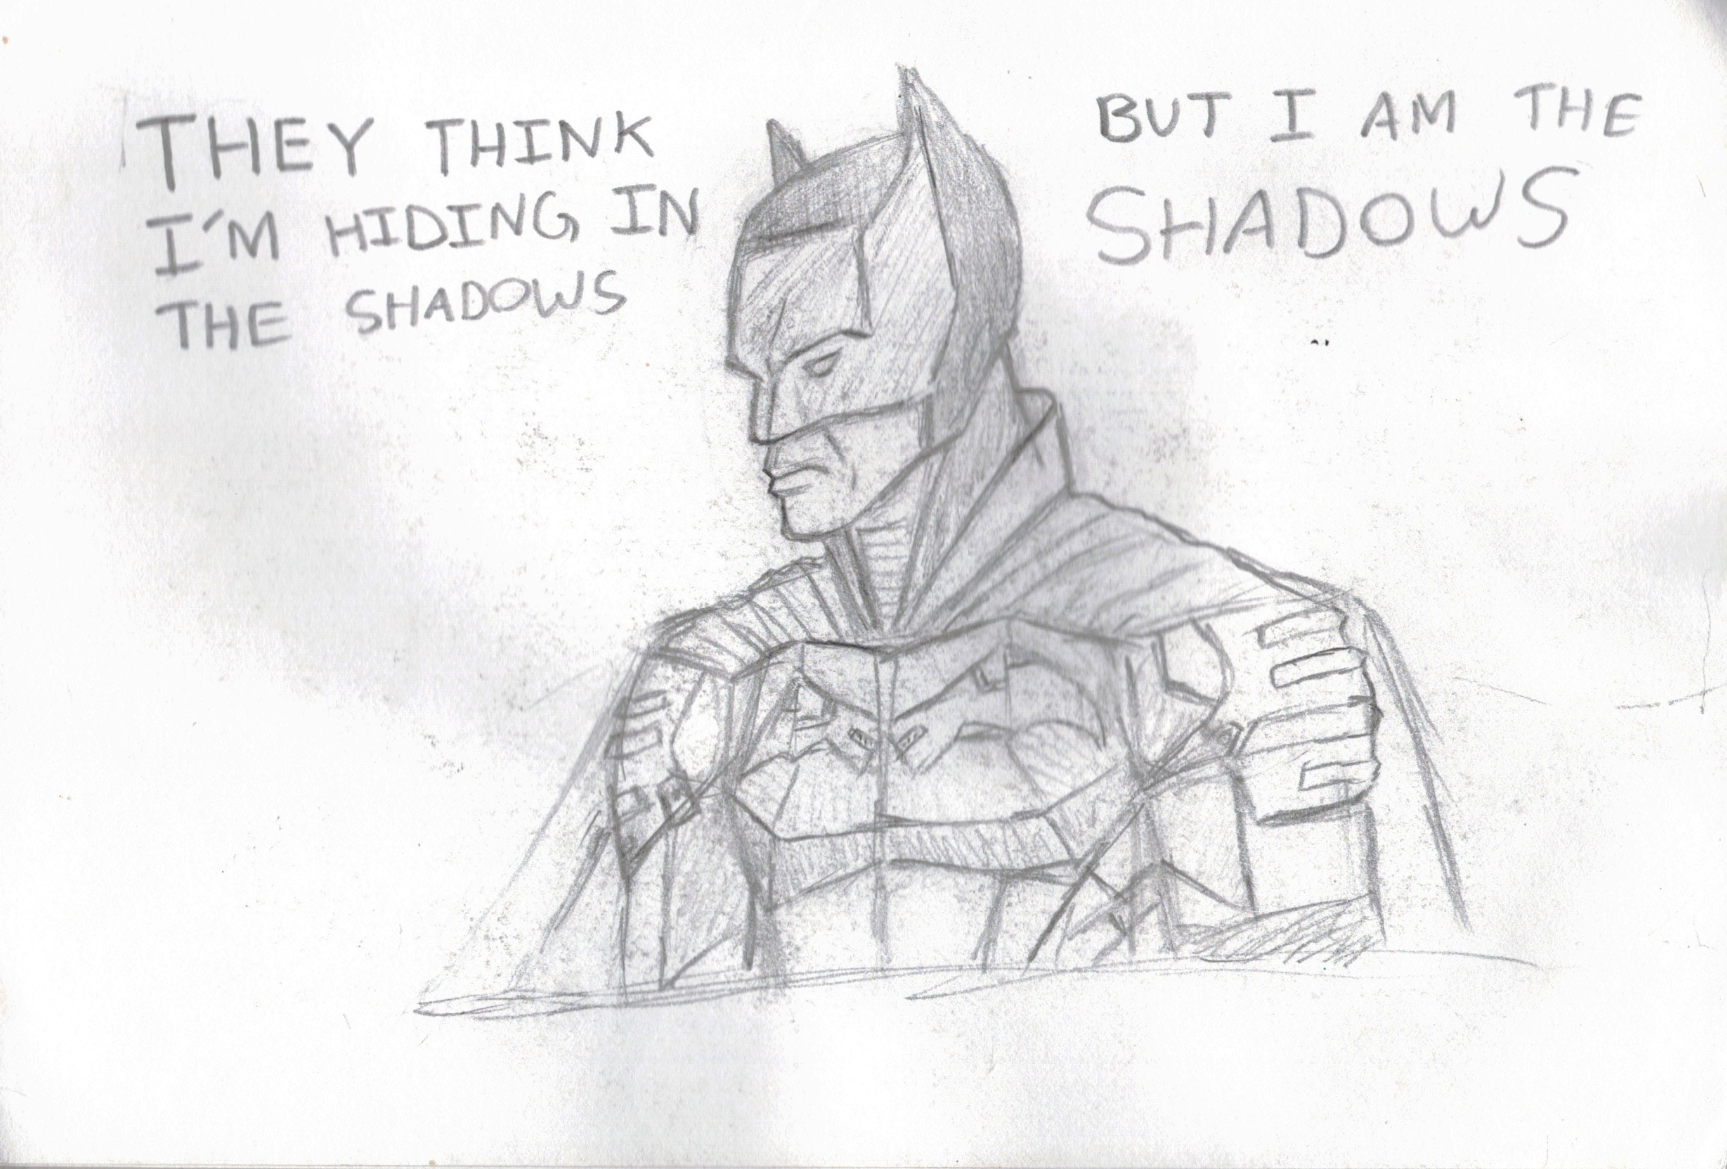 THEY THINK
I'M HIDING IN
THE SHADOWS
BUT I AM THE
SHADOWS